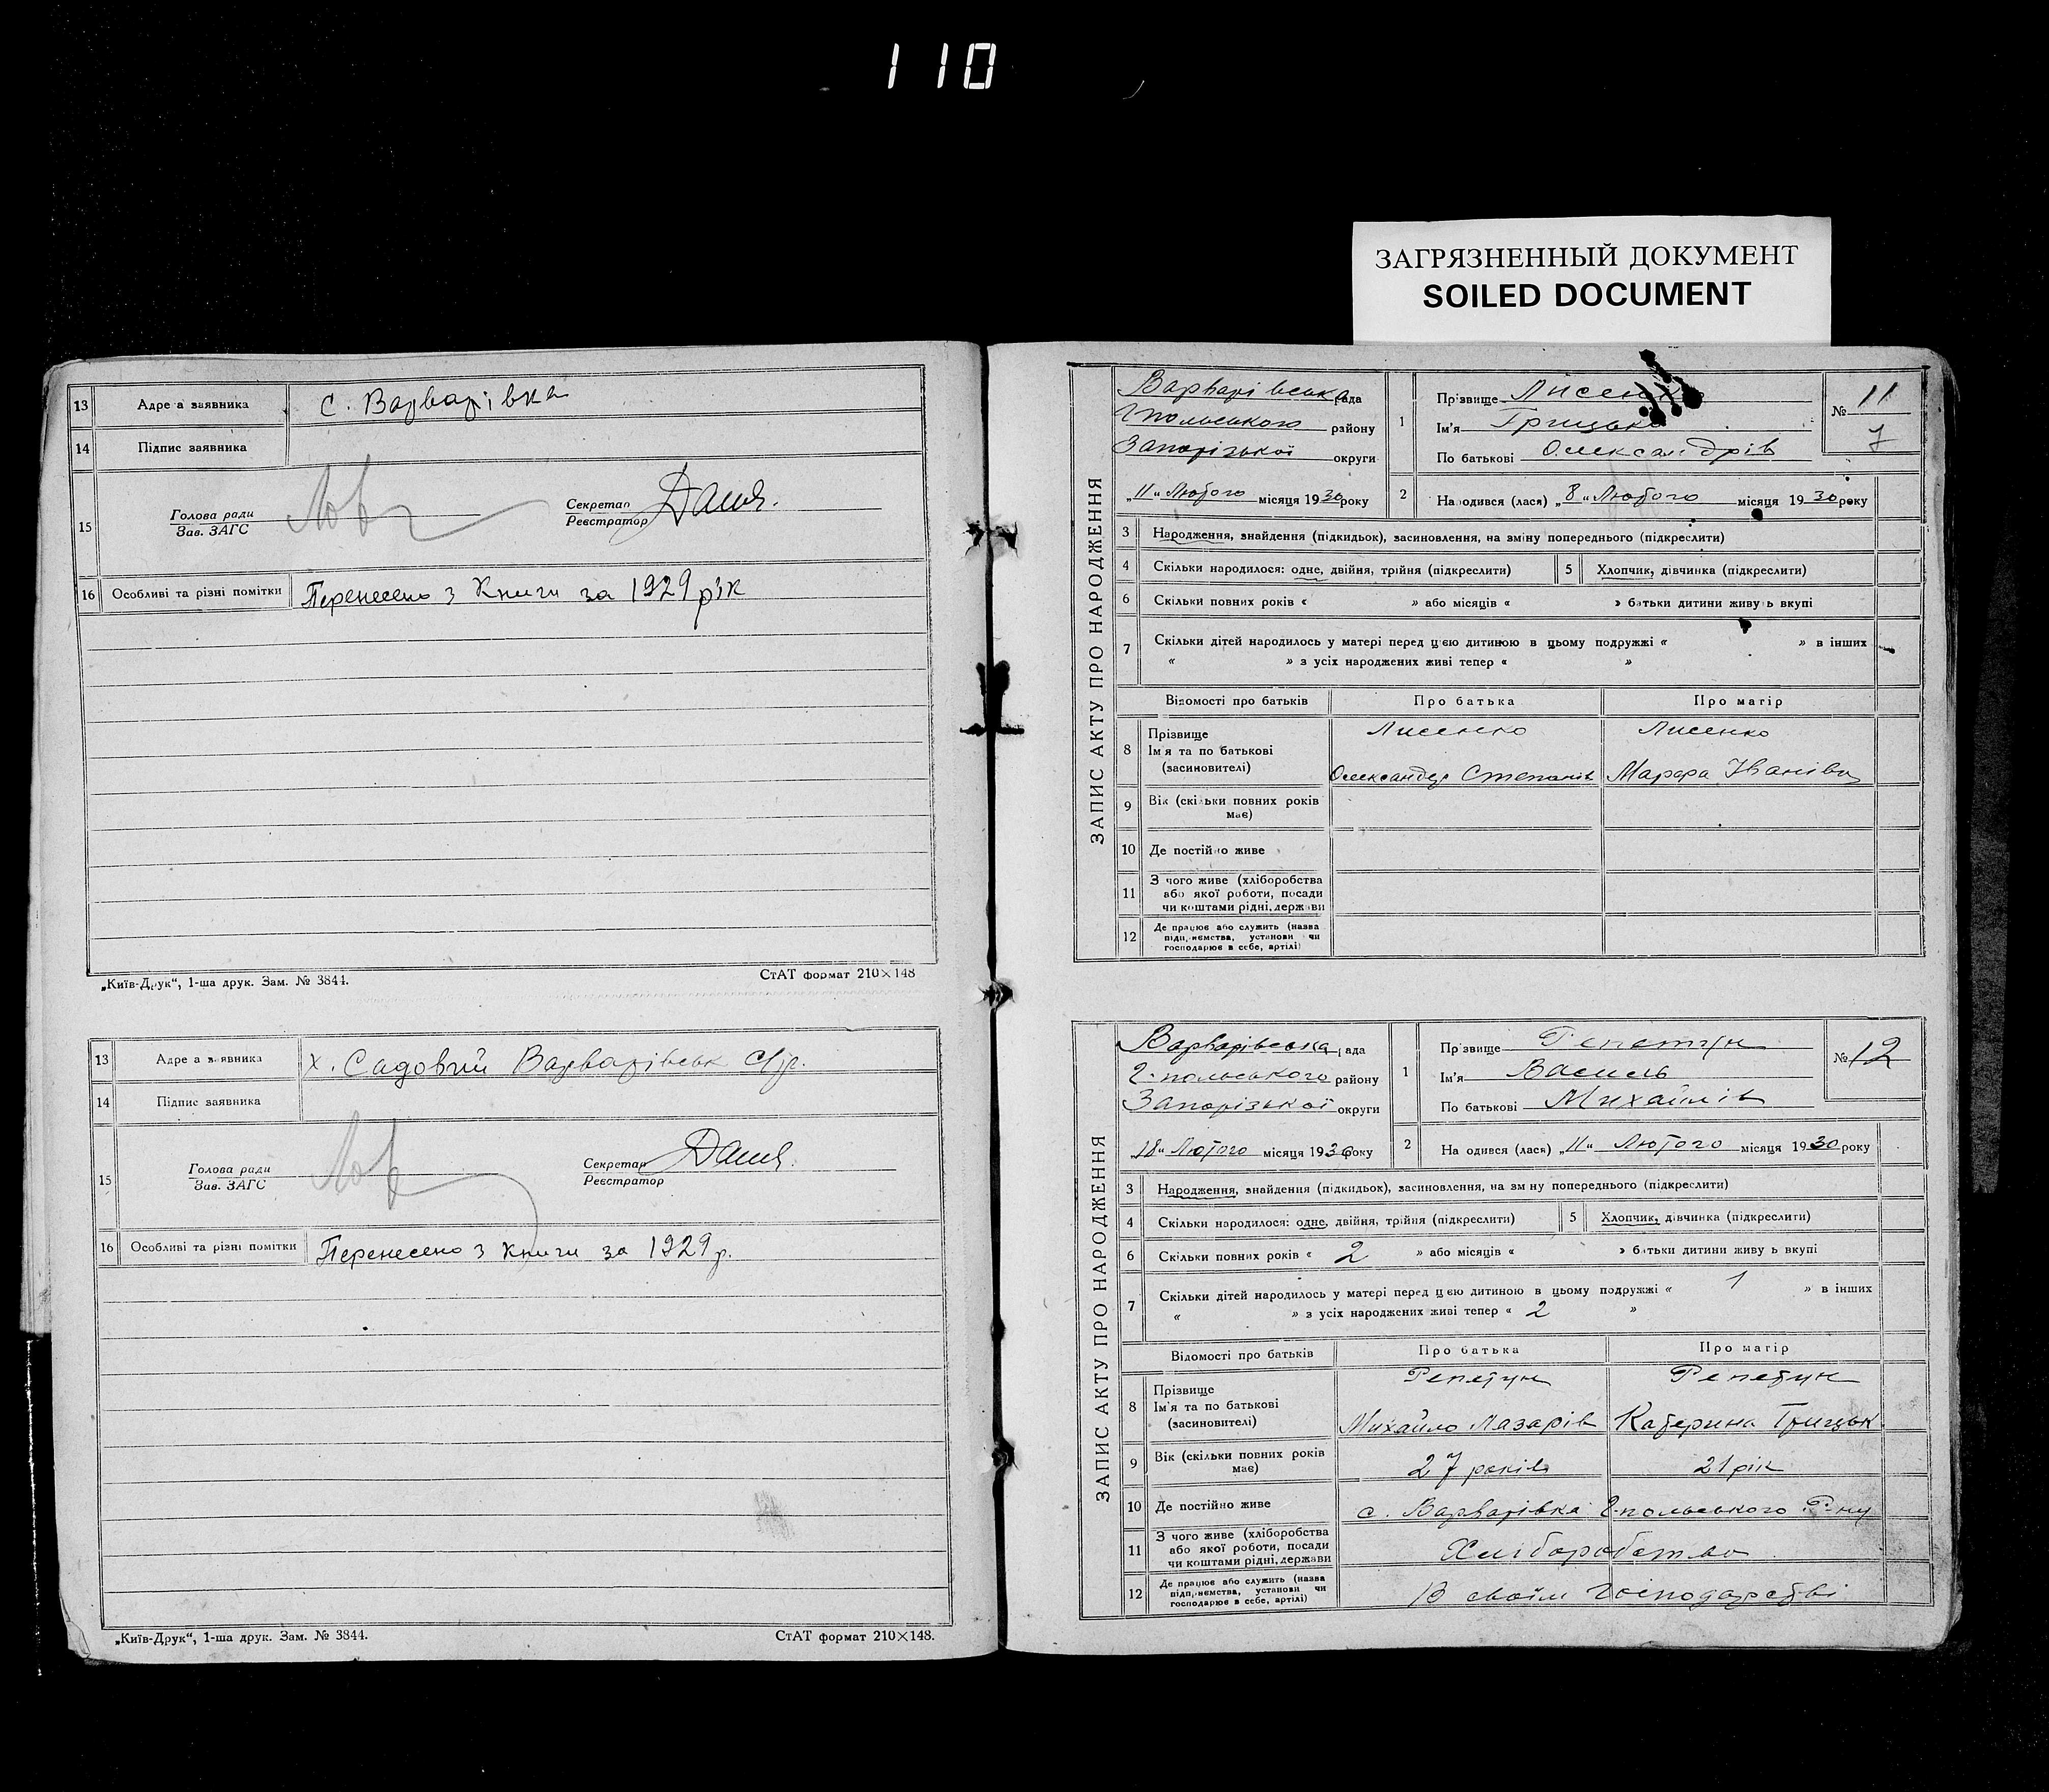 110
ЗАГРЯЗНЕННЫЙ ДОКУМЕНТ
SOILED DOCUMENT
13 Адреса заявника с. Варварівка
14 Підпис заявника
15 Голова ради
Зав. ЗАГС
Секретар
Реєстратор
16 Особливі та різні помітки Перенесено з Книги за 1929 рік
„Київ-Друк“, 1-ша друк. Зам. № 3844. СтАТ формат 210×148
13 Адреса заявника х. Садовий Варварівськ с/р.
14 Підпис заявника
15 Голова ради
Зав. ЗАГС
Секретар
Реєстратор
16 Особливі та різні помітки Перенесено з книги за 1929 р.
„Київ-Друк“, 1-ша друк. Зам. № 3844. СтАТ формат 210×148.
ЗАПИС АКТУ ПРО НАРОДЖЕННЯ
Варварівська рада
Гпольського району
Запорізької округи
„11“ Лютого місяця 1930 року
1 Прізвище Лисенко
Ім'я Грицько
По батькові Олександрів
№ 11
7
2 Народився (лася) „8“ Лютого місяця 1930 року
3 Народження, знайдення (підкидьок), засиновлення, на зміну попереднього (підкреслити)
4 Скільки народилося: одне, двійня, трійня (підкреслити) 5 Хлопчик, дівчинка (підкреслити)
6 Скільки повних років « » або місяців « » батьки дитини живуть вкупі
7 Скільки дітей народилось у матері перед цією дитиною в цьому подружжі « » в інших
« » з усіх народжених живі тепер « »
Відомості про батьків Про батька Про матір
8 Прізвище Лисенко Лисенко
Ім'я та по батькові
(засиновителі) Олександр Степанів Марфа Іванівна
9 Вік (скільки повних років
має)
10 Де постійно живе
11 З чого живе (хліборобства
або якої роботи, посади
чи коштами рідні, держави
12 Де працює або служить (назва
підприємства, установи чи
господарює в себе, артілі)
ЗАПИС АКТУ ПРО НАРОДЖЕННЯ
Варварівська рада
Г-польського району
Запорізької округи
„18“ Лютого місяця 1930 року
1 Прізвище Репетун
Ім'я Василь
По батькові Михайлів
№ 12
2 Народився (лася) „11“ Лютого місяця 1930 року
3 Народження, знайдення (підкидьок), засиновлення, на зміну попереднього (підкреслити)
4 Скільки народилося: одне, двійня, трійня (підкреслити) 5 Хлопчик, дівчинка (підкреслити)
6 Скільки повних років « 2 » або місяців « » батьки дитини живуть вкупі
7 Скільки дітей народилось у матері перед цією дитиною в цьому подружжі « 1 » в інших
« » з усіх народжених живі тепер « 2 »
Відомості про батьків Про батька Про матір
8 Прізвище Репетун Репетун
Ім'я та по батькові
(засиновителі) Михайло Лазарів Катерина Грицьк.
9 Вік (скільки повних років
має) 27 років 21 рік
10 Де постійно живе с. Варварівка Г-польського Р-ну
11 З чого живе (хліборобства
або якої роботи, посади
чи коштами рідні, держави Хліборобство
12 Де працює або служить (назва
підприємства, установи чи
господарює в себе, артілі) В своїм господарстві